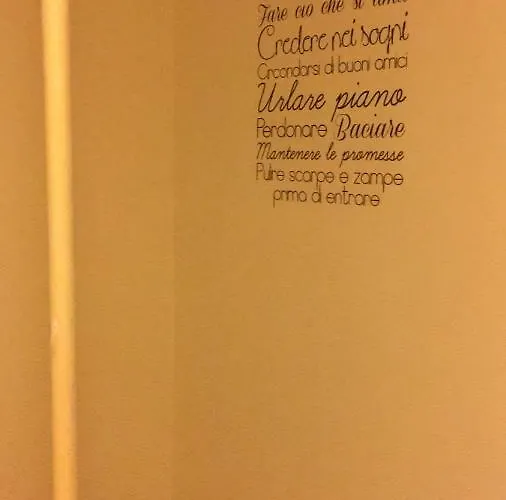 Fare ciò che si ama
Credere nei sogni
Circondarsi di buoni amici
Urlare piano
Perdonare Baciare
Mantenere le promesse
Pulire scarpe e zampe
prima di entrare